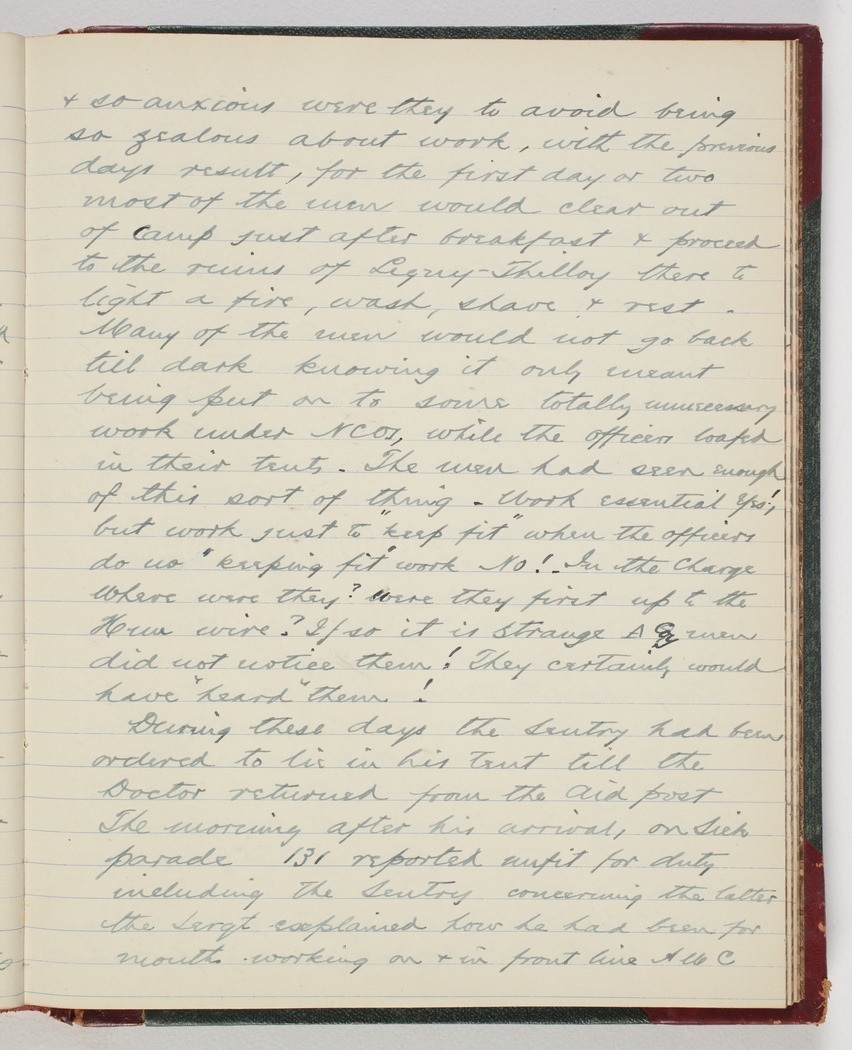 & so anxious were they to avoid being
so zealous about work, with the previous
days result, for the first day or two
most of the men would clear out
of camp just after breakfast & proceed
to the ruins of Legny-Thilloy there to
light a fire, wash, shave & rest.
Many of the men would not go back
till dark knowing it only meant
being put on to some totally unnecessary
work under NCOs, while the officers loafed
in their tents. The men had seen enough
of this sort of thing - Work essential Yes!,
but work just to "keep fit" when the officers
do no "keeping fit" work No!. In the Charge
where were they? Were they first up to the
Hun wire? If so it is strange A Coy men
did not notice them! They certainly would
have "heard" them!
During these days the Sentry had been
ordered to lie in his tent till the
Doctor returned from the Aid post
The morning after his arrival, on Sick
parade 131 reported unfit for duty
including the Sentry concerning the latter
the Sergt explained how he had been for
months working on & in front line